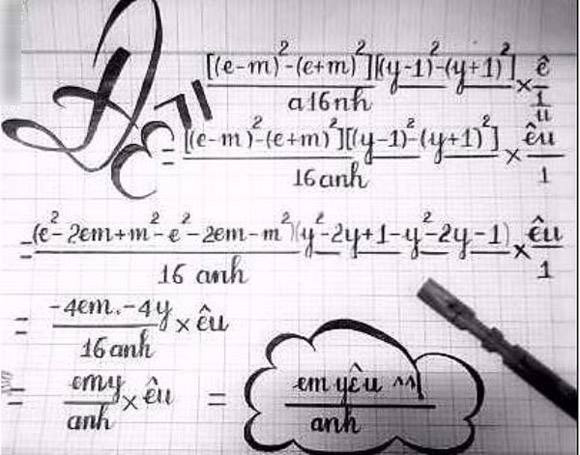 Đề 71
[(e-m)²-(e+m)²][(y-1)²-(y+1)²] / a16nh × ê / 1/u
= [(e-m)²-(e+m)²][(y-1)²-(y+1)²] / 16anh × êu / 1
= (e²-2em+m²-e²-2em-m²)(y²-2y+1-y²-2y-1) / 16 anh × êu / 1
= -4em.-4y / 16anh × êu
= emy / anh × êu = em yêu ^^ / anh